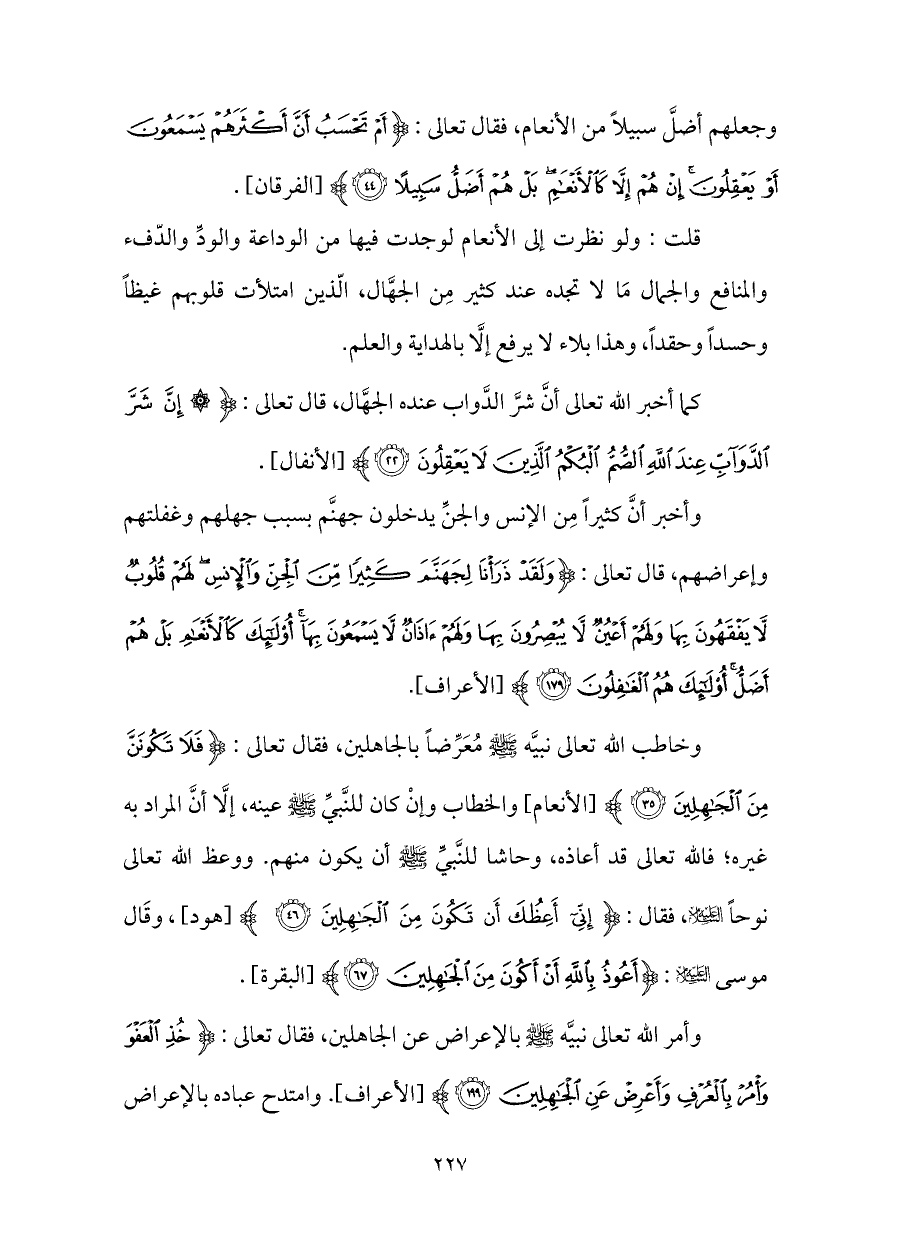 وجعلهم أضلَّ سبيلاً من الأنعام، فقال تعالى : ﴿ أَمۡ تَحۡسَبُ أَنَّ أَكۡثَرَهُمۡ يَسۡمَعُونَ
أَوۡ يَعۡقِلُونَۚ إِنۡ هُمۡ إِلَّا كَٱلۡأَنۡعَٰمِۖ بَلۡ هُمۡ أَضَلُّ سَبِيلًا ٤٤ ﴾ [الفرقان] .
قلت : ولو نظرت إلى الأنعام لوجدت فيها من الوداعة والودِّ والدّفء
والمنافع والجمال مَا لا تجده عند كثير مِن الجهَّال، الّذين امتلأت قلوبهم غيظاً
وحسداً وحقداً، وهذا بلاء لا يرفع إلَّا بالهداية والعلم.
كما أخبر الله تعالى أنَّ شرَّ الدَّواب عنده الجهَّال، قال تعالى : ﴿ ۞ إِنَّ شَرَّ
ٱلدَّوَآبِّ عِندَ ٱللَّهِ ٱلصُّمُّ ٱلۡبُكۡمُ ٱلَّذِينَ لَا يَعۡقِلُونَ ٢٢ ﴾ [الأنفال] .
وأخبر أنَّ كثيراً مِن الإنس والجنِّ يدخلون جهنَّم بسبب جهلهم وغفلتهم
وإعراضهم، قال تعالى : ﴿ وَلَقَدۡ ذَرَأۡنَا لِجَهَنَّمَ كَثِيرٗا مِّنَ ٱلۡجِنِّ وَٱلۡإِنسِۖ لَهُمۡ قُلُوبٞ
لَّا يَفۡقَهُونَ بِهَا وَلَهُمۡ أَعۡيُنٞ لَّا يُبۡصِرُونَ بِهَا وَلَهُمۡ ءَاذَانٞ لَّا يَسۡمَعُونَ بِهَآۚ أُوْلَٰٓئِكَ كَٱلۡأَنۡعَٰمِ بَلۡ هُمۡ
أَضَلُّۚ أُوْلَٰٓئِكَ هُمُ ٱلۡغَٰفِلُونَ ١٧٩ ﴾ [الأعراف].
وخاطب الله تعالى نبيَّه ﷺ مُعَرِّضاً بالجاهلين، فقال تعالى : ﴿ فَلَا تَكُونَنَّ
مِنَ ٱلۡجَٰهِلِينَ ٣٥ ﴾ [الأنعام] والخطاب وإنْ كان للنَّبيِّ ﷺ عينه، إلَّا أنَّ المراد به
غيره؛ فالله تعالى قد أعاذه، وحاشا للنَّبيِّ ﷺ أن يكون منهم. ووعظ الله تعالى
نوحاً عليه السلام، فقال : ﴿ إِنِّيٓ أَعِظُكَ أَن تَكُونَ مِنَ ٱلۡجَٰهِلِينَ ٤٦ ﴾ [هود] ، وقَال
موسى عليه السلام : ﴿ أَعُوذُ بِٱللَّهِ أَنۡ أَكُونَ مِنَ ٱلۡجَٰهِلِينَ ٦٧ ﴾ [البقرة] .
وأمر الله تعالى نبيَّه ﷺ بالإعراض عن الجاهلين، فقال تعالى : ﴿ خُذِ ٱلۡعَفۡوَ
وَأۡمُرۡ بِٱلۡعُرۡفِ وَأَعۡرِضۡ عَنِ ٱلۡجَٰهِلِينَ ١٩٩ ﴾ [الأعراف]. وامتدح عباده بالإعراض
٢٢٧